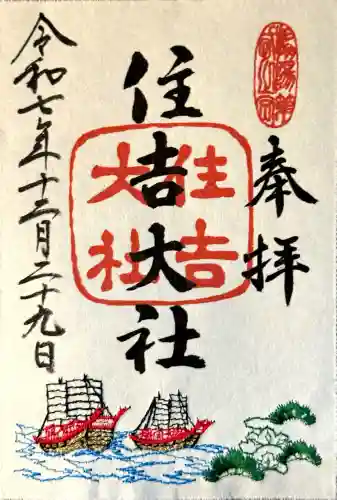 奉拝
住吉大社
住吉大社
令和七年十二月二十九日